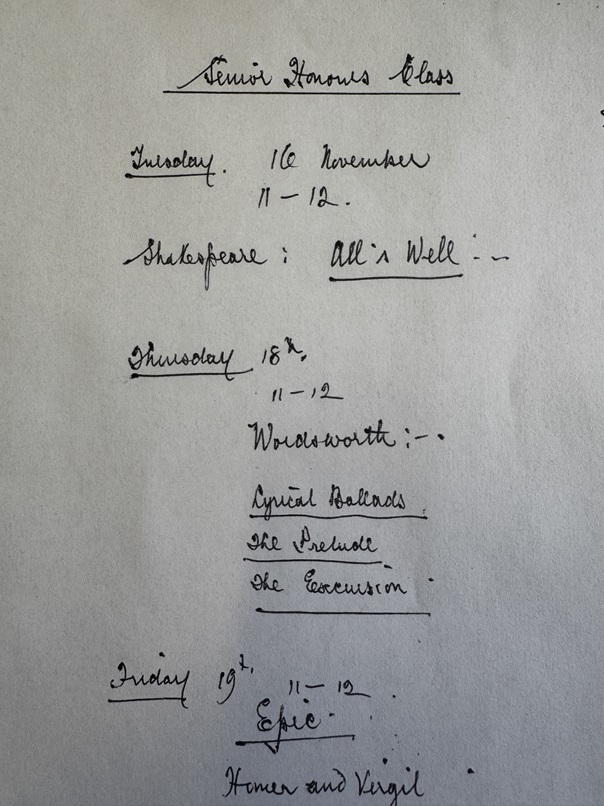 Senior Honours Class
Tuesday. 16 November
11 - 12.
Shakespeare : All's Well :-
Thursday 18th.
11 - 12
Wordsworth :-
Lyrical Ballads.
The Prelude
The Excursion
Friday 19th. 11 - 12
Epic.
Homer and Virgil